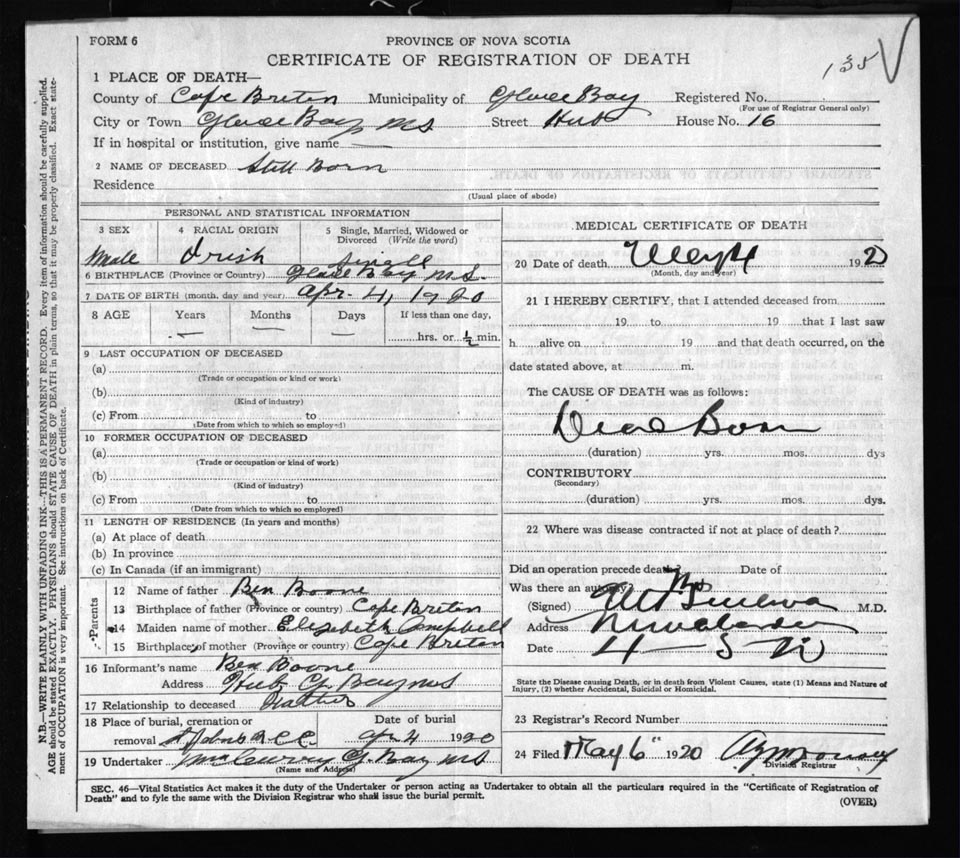 FORM 6
PROVINCE OF NOVA SCOTIA
CERTIFICATE OF REGISTRATION OF DEATH
135
1 PLACE OF DEATH—
County of Cape Breton Municipality of Glace Bay Registered No.
(For use of Registrar General only)
City or Town Glace Bay N S Street Hub House No. 16
If in hospital or institution, give name
2 NAME OF DECEASED Still Born
Residence
(Usual place of abode)
PERSONAL AND STATISTICAL INFORMATION
3 SEX 4 RACIAL ORIGIN 5 Single, Married, Widowed or Divorced (Write the word)
Male Irish Single
6 BIRTHPLACE (Province or Country) Glace Bay N S.
7 DATE OF BIRTH (month, day and year) Apr. 4, 1920
8 AGE Years Months Days If less than one day,
hrs. or ½ min.
9 LAST OCCUPATION OF DECEASED
(a)
(Trade or occupation or kind or work)
(b)
(Kind of industry)
(c) From to
(Date from which to which so employed)
10 FORMER OCCUPATION OF DECEASED
(a)
(Trade or occupation or kind of work)
(b)
(Kind of industry)
(c) From to
(Date from which to which so employed)
11 LENGTH OF RESIDENCE (In years and months)
(a) At place of death
(b) In province
(c) In Canada (if an immigrant)
Parents
12 Name of father Ben Boone
13 Birthplace of father (Province or country) Cape Breton
14 Maiden name of mother Elizabeth Campbell
15 Birthplace of mother (Province or country) Cape Breton
16 Informant's name Ben Boone
Address Hub G. Bay N S
17 Relationship to deceased Father
18 Place of burial, cremation or removal St Johns Date of burial Apr 4 1920
19 Undertaker G. Bay N S
(Name and Address)
MEDICAL CERTIFICATE OF DEATH
20 Date of death 4 192
(Month, day and year)
21 I HEREBY CERTIFY, that I attended deceased from
19 to 19 that I last saw
h alive on 19 and that death occurred, on the
date stated above, at m.
The CAUSE OF DEATH was as follows:
Dead Born
(duration) yrs. mos. dys
CONTRIBUTORY
(Secondary)
(duration) yrs. mos. dys.
22 Where was disease contracted if not at place of death?
Did an operation precede death No Date of
Was there an autopsy
(Signed) M.D.
Address
Date 4 – 5 – 20
State the Disease causing Death, or in death from Violent Causes, state (1) Means and Nature of Injury, (2) whether Accidental, Suicidal or Homicidal.
23 Registrar's Record Number
24 Filed May 6 1920
Division Registrar
SEC. 46—Vital Statistics Act makes it the duty of the Undertaker or person acting as Undertaker to obtain all the particulars required in the "Certificate of Registration of
Death" and to fyle the same with the Division Registrar who shall issue the burial permit.
(OVER)
N.B.—WRITE PLAINLY WITH UNFADING INK—THIS IS A PERMANENT RECORD. Every item of information should be carefully supplied.
AGE should be stated EXACTLY. PHYSICIANS should STATE CAUSE OF DEATH in plain terms, so that it may be properly classified. Exact state-
ment of OCCUPATION is very important. See instructions on back of Certificate.